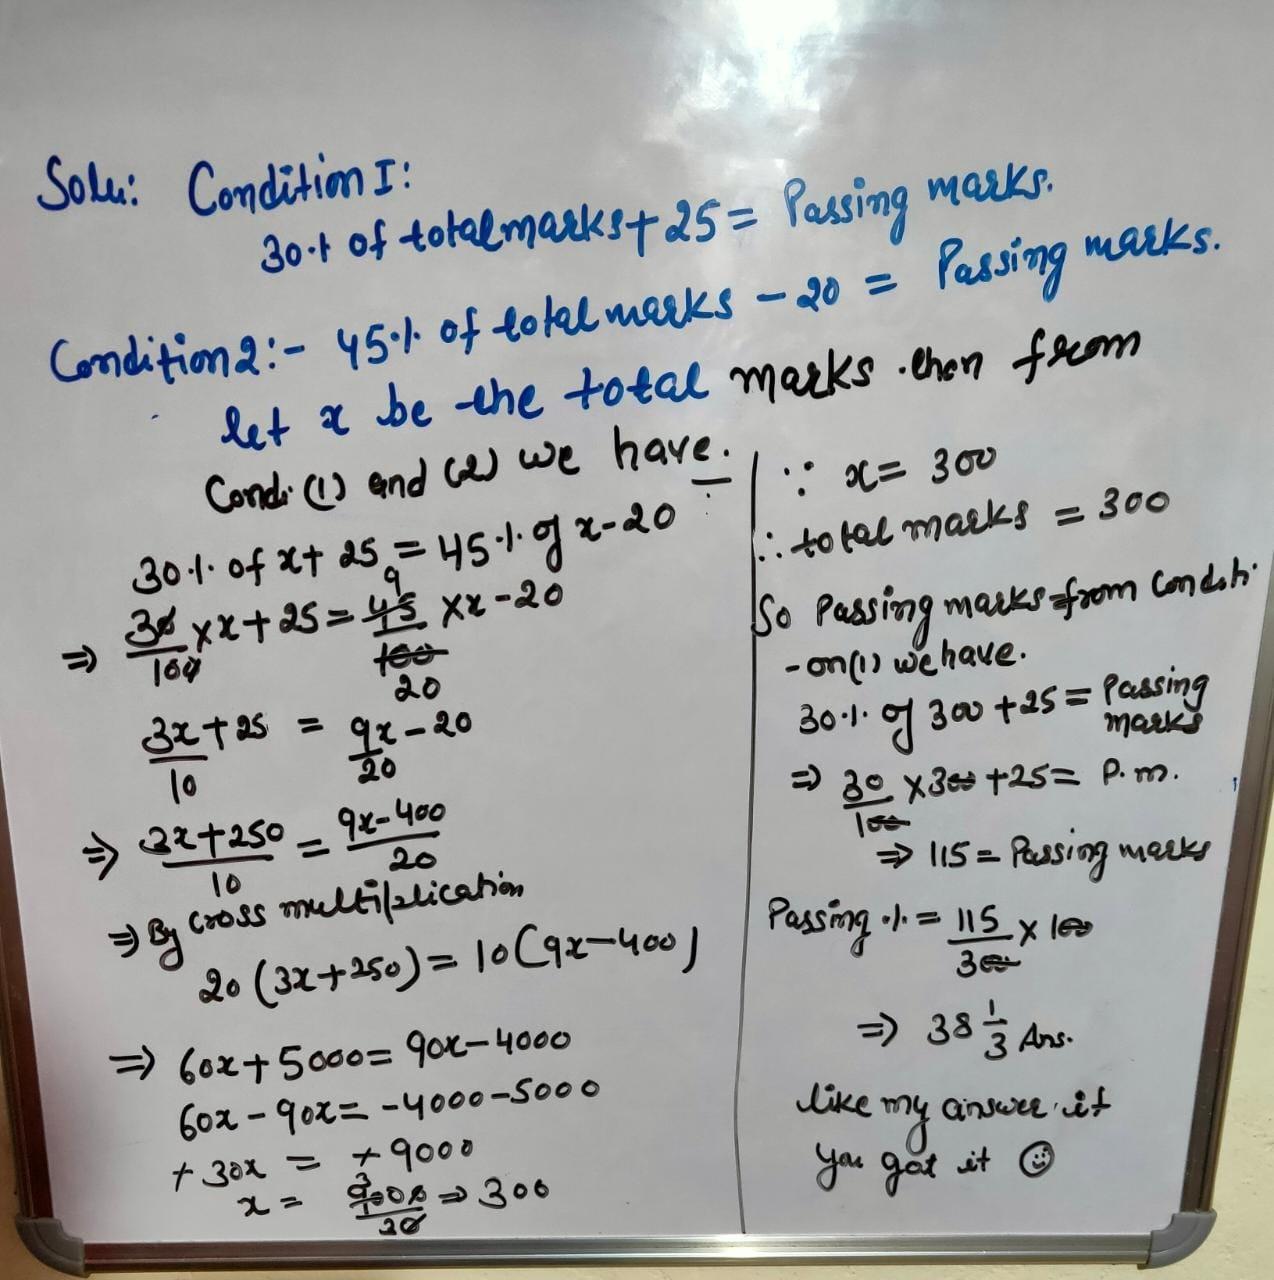 Solu: Condition I:
30% of total marks + 25 = Passing marks.
Condition 2:- 45% of total marks - 20 = Passing marks.
let x be the total marks then from
Condi (1) and (2) we have.
30% of x + 25 = 45% of x - 20
⇒ 30/100 × x + 25 = 9 45/100 × x - 20
20
3x/10 + 25 = 9x/20 - 20
⇒ 3x+250/10 = 9x-400/20
⇒ By cross multiplication
20 (3x+250) = 10 (9x-400)
⇒ 60x + 5000 = 90x - 4000
60x - 90x = -4000 - 5000
+ 30x = + 9000
x = 9000/30 ⇒ 300
∵ x = 300
∴ total marks = 300
So Passing marks from Conditi
- on (1) we have.
30% of 300 + 25 = Passing marks
⇒ 30/100 × 300 + 25 = P.m.
⇒ 115 = Passing marks
Passing % = 115/300 × 100
⇒ 38 1/3 Ans.
like my answer if
you got it ☺